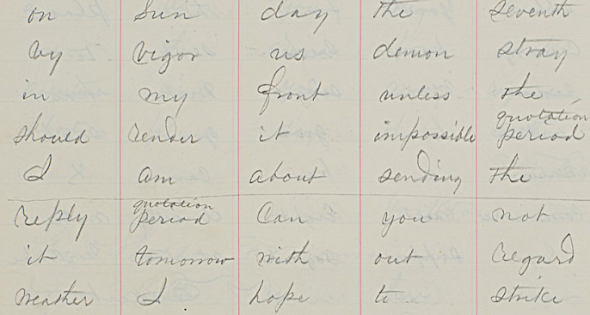 on Sun day the seventh
by vigor us demon stray
in my front unless the
quotation
should render it impossible period
I am about sending the
quotation
reply period Can you not
it tomorrow with out regard
weather I hope to strike